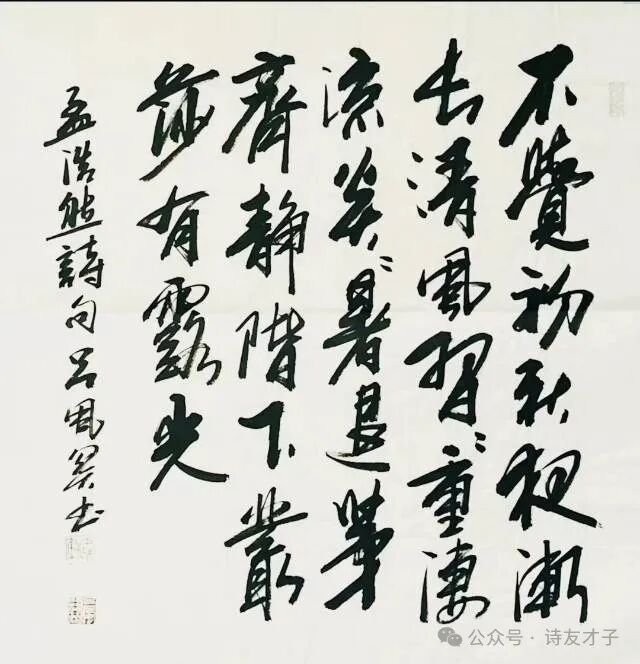 不覺初秋夜漸
长清風習〻重淒
涼炎〻暑退茅
齊静階下叢
莎有露光
孟浩然詩句呂書
公众号 · 诗友才子